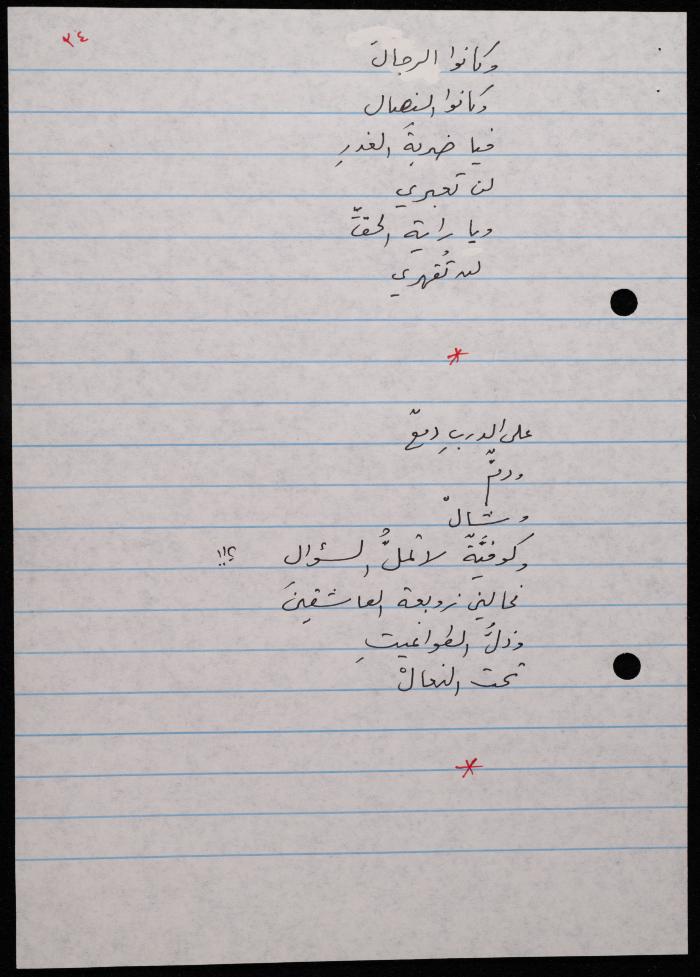 ٣٤
وكانوا الرجالَ
وكانوا النصال
فيا ضربةَ الغدرِ
لن تعبري
ويا راية الحقِّ
لن تُقهري
*
على الدربِ دمعٌ
ودمٌّ
وشالْ
وكوفيَّةٌ لا تملُّ السؤال ؟!!
زوبعة العاشقينَ
وذلُّ الطواغيتِ
تحت النعالْ
*